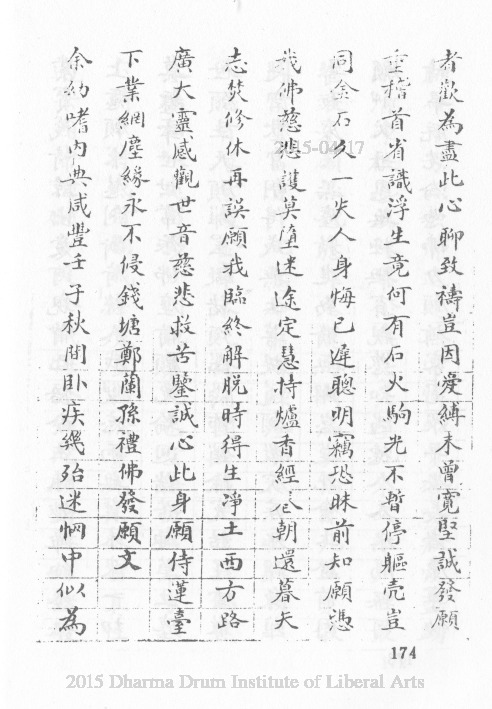 者歡為盡此心聊致禱豈因愛縛未曾寬堅誠發願
重稽首省識浮生竟何有石火駒光不暫停軀壳豈
同金石久一失人身悔已遲聰明竊恐昧前知願憑
我佛慈悲護莫墮迷途定慧持爐香經卷朝還暮矢
志焚修休再誤願我臨終解脫時得生淨土西方路
廣大靈感觀世音慈悲救苦鑒誠心此身願侍蓮臺
下業網塵緣永不侵錢塘鄭蘭孫禮佛發願文
余幼嗜內典咸豐壬子秋間臥疾幾殆迷惘中似為
174
2015-04-17
2015 Dharma Drum Institute of Liberal Arts